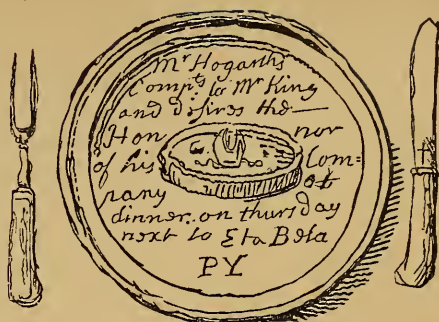 Mr Hogarth's
Compts to Mr King
and desires the—
Hon nor
of his Com=
pany at
dinner on thursday
next to Eta Beta
PY